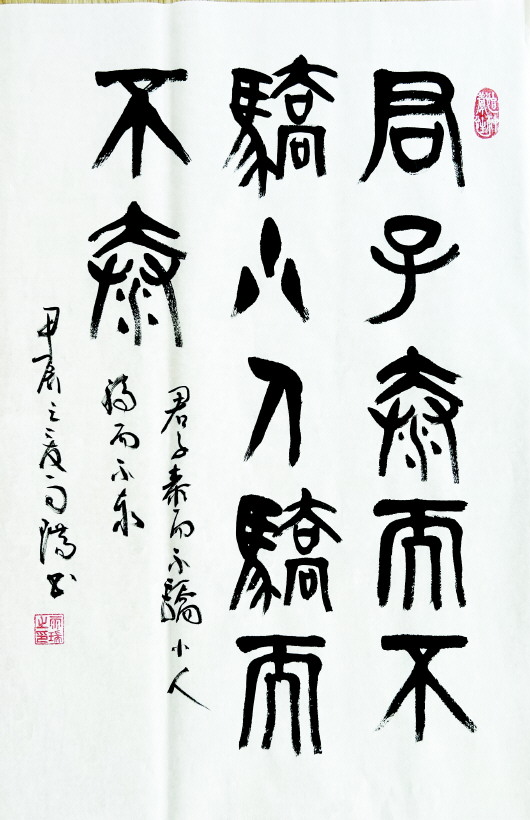 君子泰而不
驕小人驕而
不泰
君子泰而不驕小人
驕而不泰
之夏雨
书